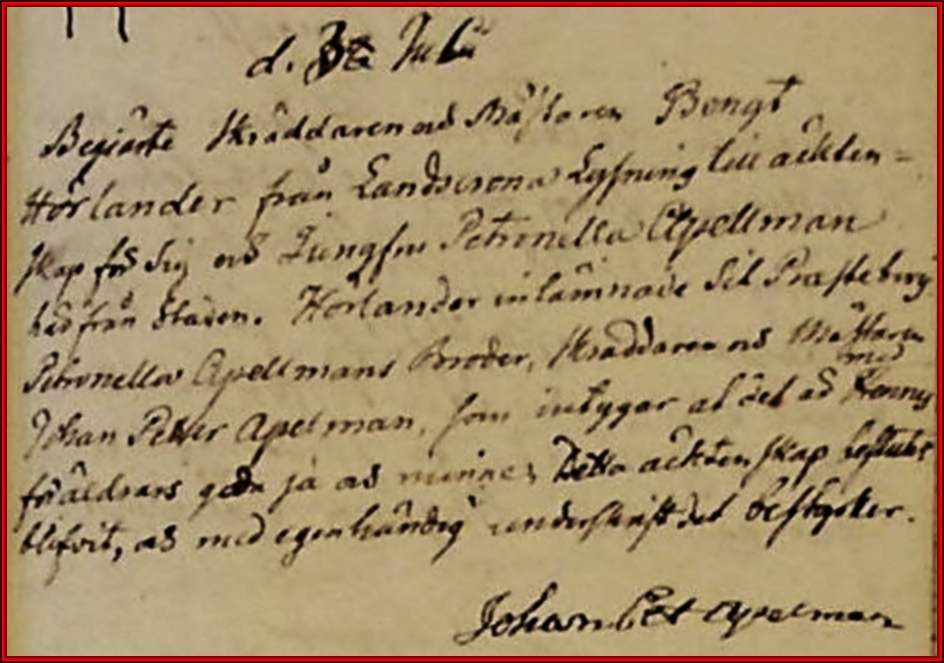 d. 3ta Julii
Begiärte Skräddaren och Mästaren Bengt
Hörlander från Landscrona Lysning till äckten=
skap för sig och Jungfru Petronella Apellman
här från Staden. Hörlander inlämnade sit Prästebewis
Petronella Apellmans Broder, Skräddaren och Mästaren
Johan Petter Apelman, som intygar at det är med hennes
föräldrars goda ja och minne, Detta äcktenskap
blifvit, och med egenhändig underskrift det bestyrker.
Johan Pet Apelman